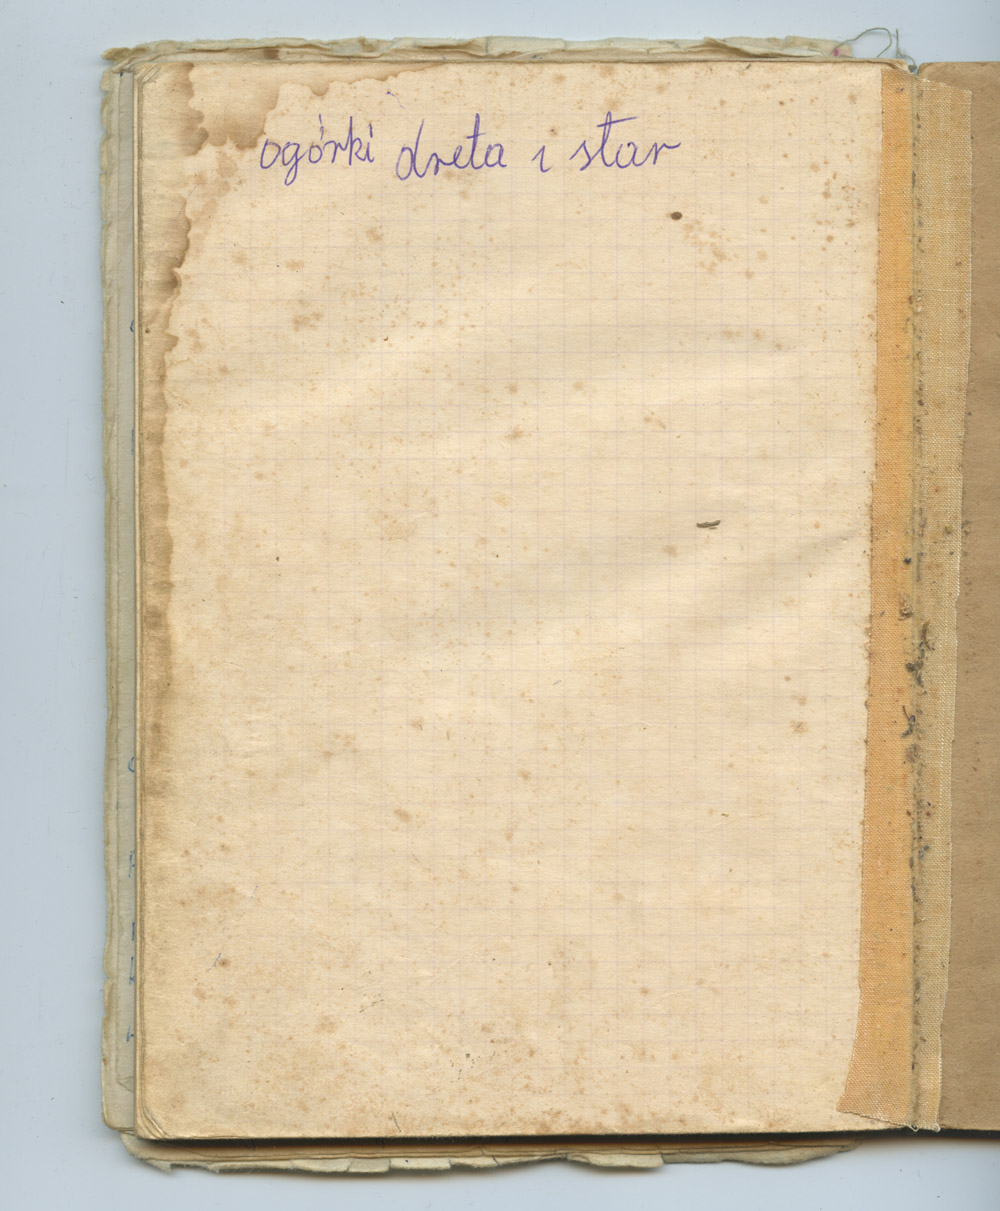 ogórki dreta i star